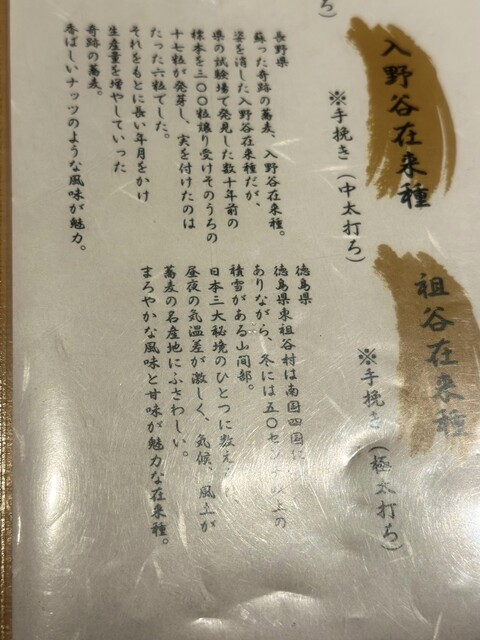 ち）
入野谷在来種
※手挽き（中太打ち）
長野県
蘇った奇跡の蕎麦、入野谷在来種。
姿を消した入野谷在来種だが、
県の試験場で発見した数十年前の
標本を三〇〇粒譲り受けそのうちの
十七粒が発芽し、実を付けたのは
たった六粒でした。
それをもとに長い年月をかけ
生産量を増やしていった
奇跡の蕎麦。
香ばしいナッツのような風味が魅力。
祖谷在来種
※手挽き（極太打ち）
徳島県
徳島県東祖谷村は南国四国に
ありながら、冬には五〇センチ以上の
積雪がある山間部。
日本三大秘境のひとつに数え
昼夜の気温差が激しく、気候、風土が
蕎麦の名産地にふさわしい。
まろやかな風味と甘味が魅力な在来種。